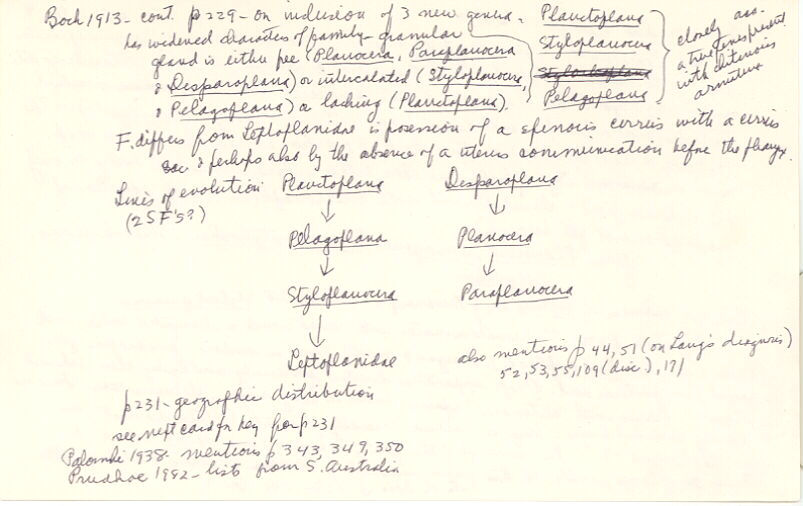 Bock 1913 - cont. p 229 - on inclusion of 3 new genera,
has widened characters of family - granular
gland is either free (Planocera, Paraplanocera
& Desparoplana) or intercalated (Styloplanocera,
& Pelagoplana) or lacking (Planctoplana).
Planctoplana
Styloplanocera
Pelagoplana
closely ass.
a true penis present
with chitenois
armature
F. differs from Leptoplanidae is possession of a spinois cirris with a cirris
sac & perhaps also by the absence of a uterus communication before the pharyx.
Lines of evolution
(2 SF's?)
Planctoplana
↓
Pelagoplana
↓
Styloplanocera
↓
Leptoplanidae
Desparoplana
↓
Planocera
↓
Paraplanocera
also mentions p 44, 51 (on Lang's diagnosis)
52, 53, 55, 109 (disc), 171
p 231 - geographic distribution
see next card for key from p 231
Palombi 1938 - mentions p 343, 349, 350
Prudhoe 1982 - lists from S. Australia